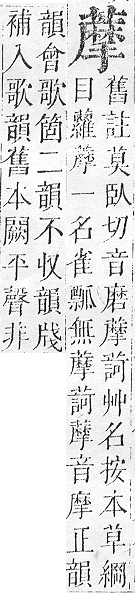 藦
舊註莫臥切音磨藦𦬆艸名按本草綱
目蘿藦一名雀瓢無藦𦬆藦音摩正韻
韻會歌箇二韻不收韻牋
補入歌韻舊本闕平聲非